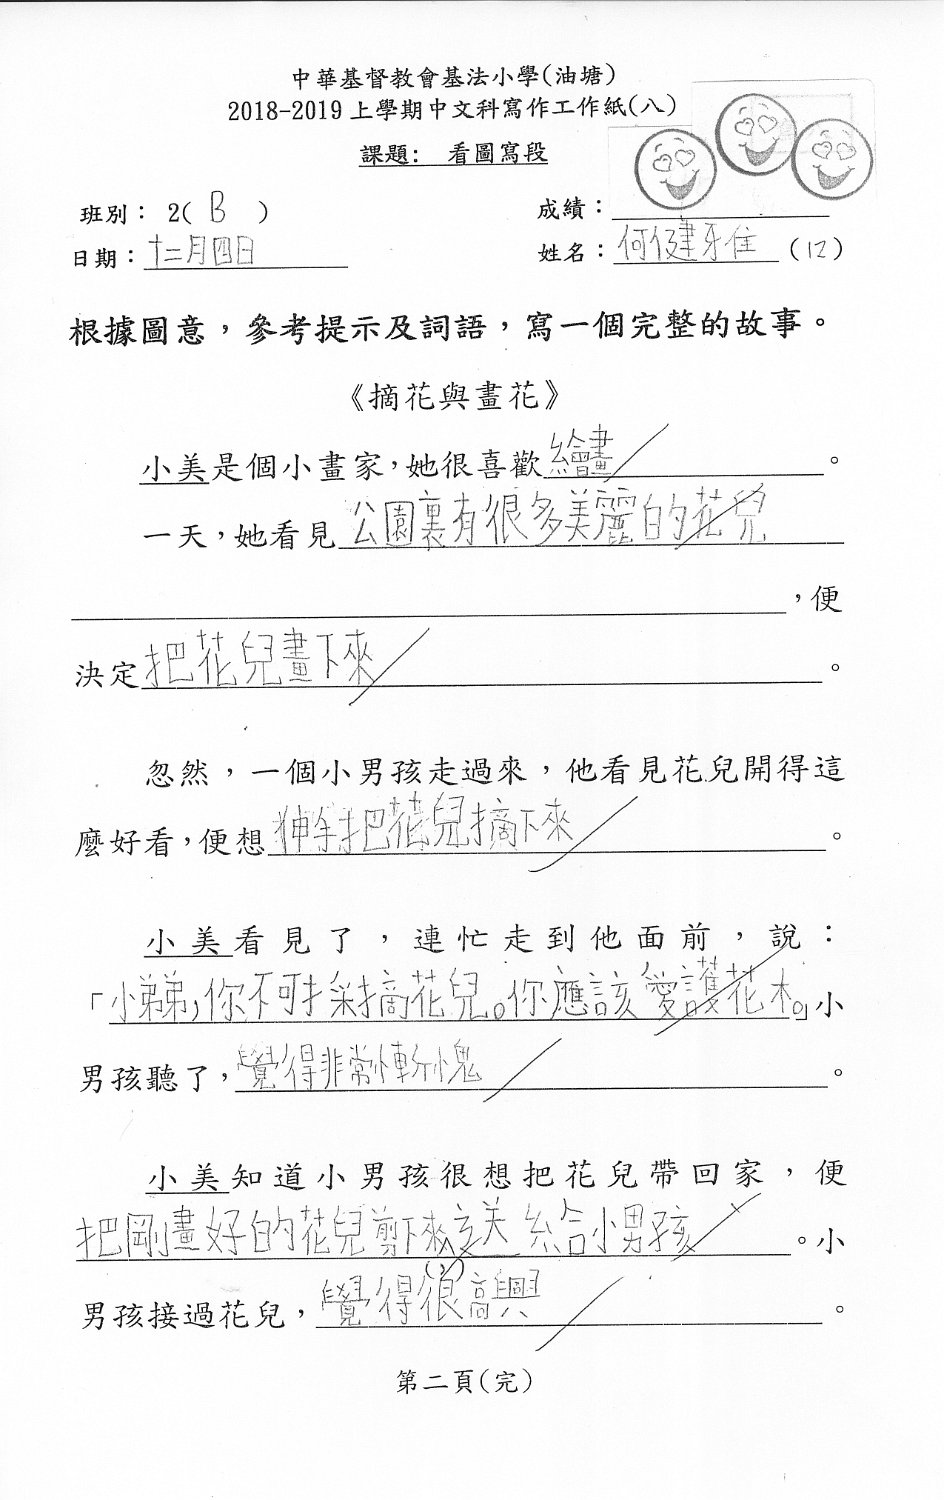 中華基督教會基法小學(油塘)
2018-2019上學期中文科寫作工作紙(八)
課題: 看圖寫段
班別: 2( B ) 成績:
日期: 十二月四日 姓名: 何健牙住 (12)
根據圖意,參考提示及詞語,寫一個完整的故事。
《摘花與畫花》
小美是個小畫家,她很喜歡繪畫。
一天,她看見公園裏有很多美麗的花兒
,便
決定把花兒畫下來。
忽然,一個小男孩走過來,他看見花兒開得這
麼好看,便想伸手把花兒摘下來。
小美看見了,連忙走到他面前,說:
「小弟弟,你不可採摘花兒。你應該愛護花木。」小
男孩聽了,覺得非常慚愧。
小美知道小男孩很想把花兒帶回家,便
把剛畫好的花兒剪下來,送給小男孩。小
男孩接過花兒,覺得很高興。
第二頁(完)